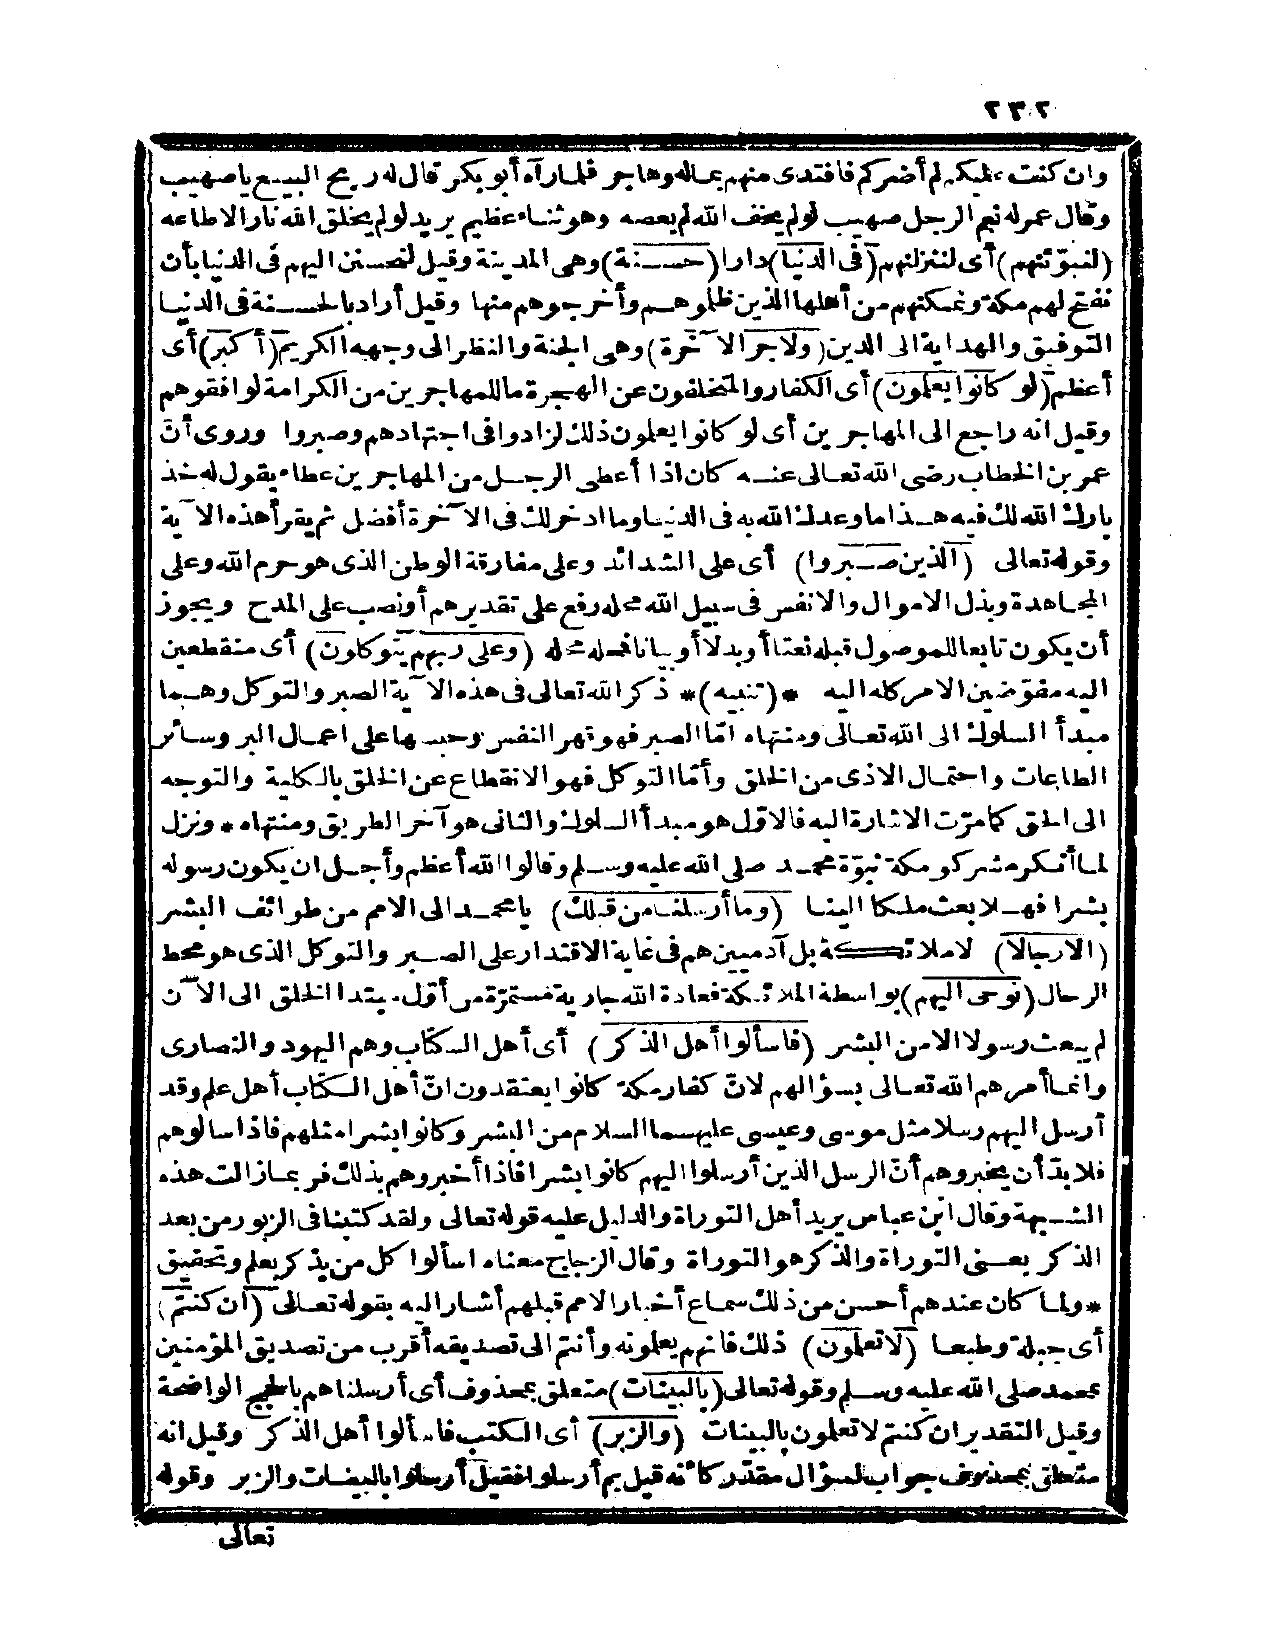 ٢٣٢
وان كنت عليكم لم أضركم فافتدى منهم بماله وهاجر فلما رآه أبو بكر قال له ربح البيع يا صهيب
وقال عمر له نعم الرجل صهيب لو لم يخف الله لم يعصه وهو ثناء عظيم يريد لو لم يخلق الله نارا لاطاعه
(لنبوّئنهم) أى لننزلنهم (فى الدنيا) دارا (حسنة) وهى المدينة وقيل لنحسنن اليهم فى الدنيا بأن
نفتح لهم مكة ونمكنهم من أهلها الذين ظلموهم وأخرجوهم منها وقيل أراد بالحسنة فى الدنيا
التوفيق والهداية الى الدين (ولاجر الآخرة) وهى الجنة والنظر الى وجهه الكريم (أكبر) أى
أعظم (لو كانوا يعلمون) أى الكفار والمتخلفون عن الهجرة ما للمهاجرين من الكرامة لوافقوهم
وقيل انه راجع الى المهاجرين أى لو كانوا يعلمون ذلك لزادوا فى اجتهادهم وصبروا وروى أنّ
عمر بن الخطاب رضى الله تعالى عنه كان اذا أعطى الرجل من المهاجرين عطاء يقول له خذ
بارك الله لك فيه هذا ما وعدك الله به فى الدنيا وما ادخر لك فى الآخرة أفضل ثم يقرأ هذه الآية
وقوله تعالى (الذين صبروا) أى على الشدائد وعلى مفارقة الوطن الذى هو حرم الله وعلى
المجاهدة وبذل الاموال والانفس فى سبيل الله محله رفع على تقديرهم أو نصب على المدح ويجوز
أن يكون تابعا للموصول قبله نعتا أو بدلا أو بيانا فمحله محله (وعلى ربهم يتوكلون) أى منقطعين
اليه مفوّضين الامر كله اليه *(تنبيه)* ذكر الله تعالى فى هذه الآية الصبر والتوكل وهما
مبدأ السلوك الى الله تعالى ومنتهاه امّا الصبر فهو قهر النفس وحبسها على اعمال البر وسائر
الطاعات واحتمال الاذى من الخلق وأمّا التوكل فهو الانقطاع عن الخلق بالكلية والتوجه
الى الحق كما مرّت الاشارة اليه فالاوّل هو مبدأ السلوك والثانى هو آخر الطريق ومنتهاه * ونزل
لما أنكر مشركو مكة نبوّة محمد صلى الله عليه وسلم وقالوا الله أعظم وأجل ان يكون رسوله
بشرا فهلا بعث ملكا الينا (وما أرسلنا من قبلك) يا محمد الى الامم من طوائف البشر
(الا رجالا) لا ملائكة بل آدميين هم فى غاية الاقتدار على الصبر والتوكل الذى هو محط
الرحال (نوحى اليهم) بواسطة الملائكة فعادة الله جارية مستمرّة من أول مبتدا الخلق الى الآن
لم يبعث رسولا الا من البشر (فاسألوا أهل الذكر) أى أهل الكتاب وهم اليهود والنصارى
وانما أمرهم الله تعالى بسؤالهم لانّ كفار مكة كانوا يعتقدون انّ أهل الكتاب أهل علم وقد
أرسل اليهم رسلا مثل موسى وعيسى عليهما السلام من البشر وكانوا بشرا مثلهم فاذا سالوهم
فلا بدّ أن يخبروهم أنّ الرسل الذين أرسلوا اليهم كانوا بشرا فاذا أخبروهم بذلك فربما زالت هذه
الشبهة وقال ابن عباس يريد أهل التوراة والدليل عليه قوله تعالى ولقد كتبنا فى الزبور من بعد
الذكر يعنى التوراة والذكر هو التوراة وقال الزجاج معناه اسألوا كل من يذكر بعلم وتحقيق
* ولما كان عندهم أحسن من ذلك سماع أخبار الامم قبلهم أشار اليه بقوله تعالى (ان كنتم)
أى جبلة وطبعا (لا تعلمون) ذلك فانهم يعلمونه وأنتم الى تصديقه أقرب من تصديق المؤمنين
بمحمد صلى الله عليه وسلم وقوله تعالى (بالبينات) متعلق بمحذوف أى أرسلناهم بالحجج الواضحة
وقيل التقدير ان كنتم لا تعلمون بالبينات (والزبر) أى الكتب فاسألوا أهل الذكر وقيل انه
متعلق بمحذوف جواب لسؤال مقدّر كأنه قيل بم أرسلوا فقيل أرسلوا بالبينات والزبر وقوله
تعالى